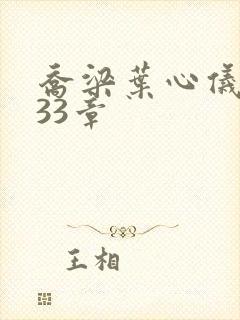 乔梁葉心儀
33章
王相